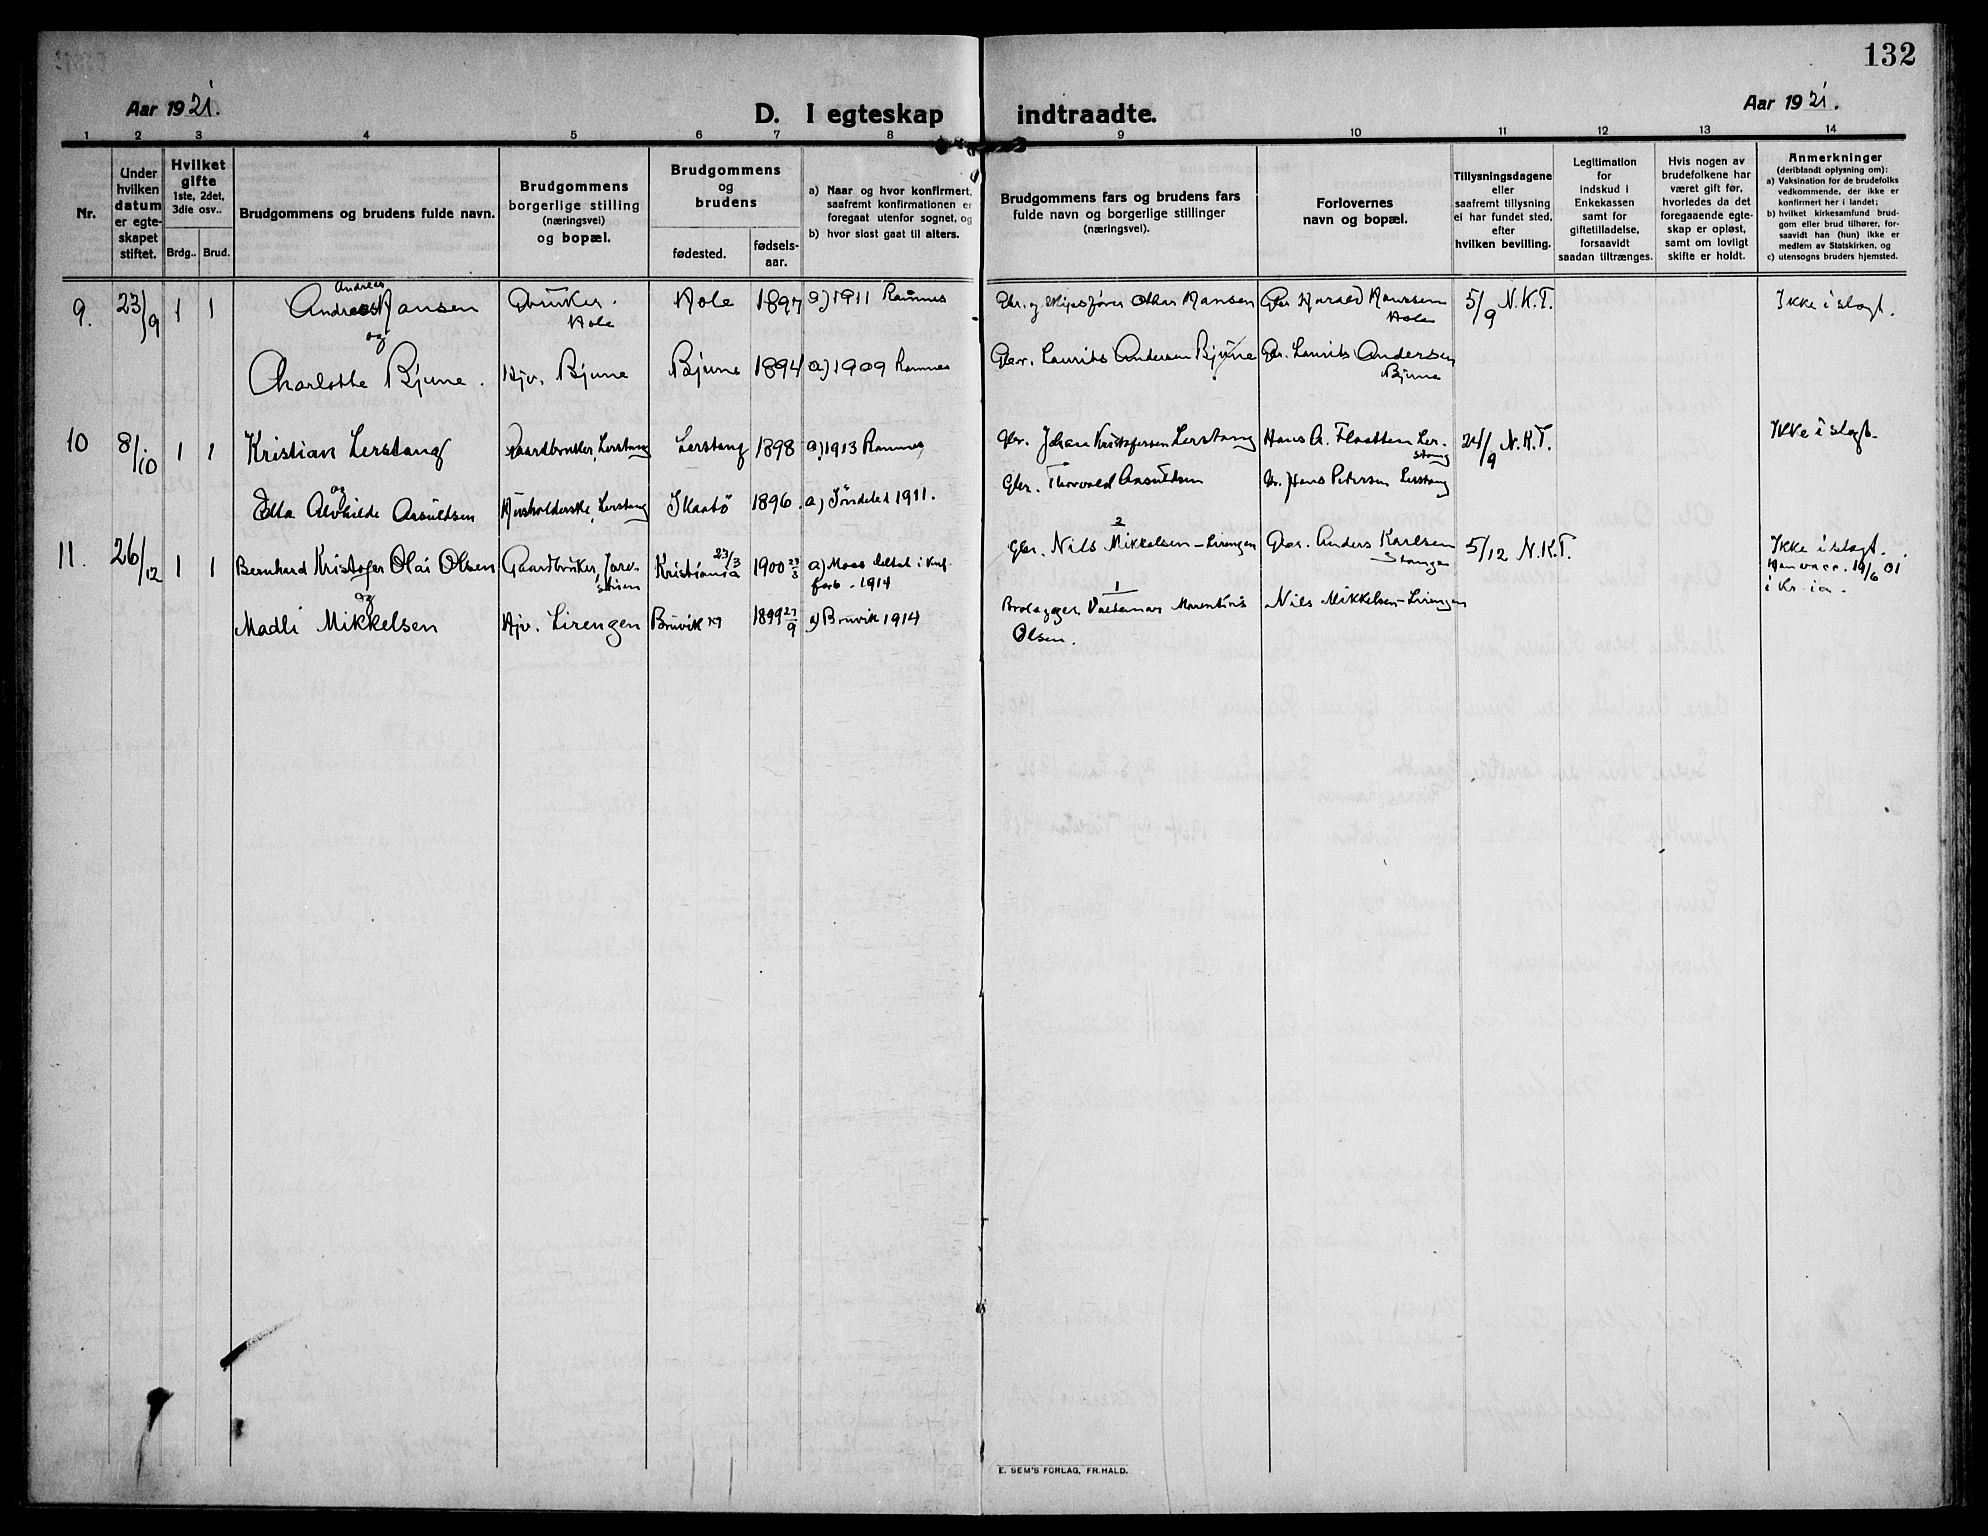 132
Aar 1921.
D. I egteskap indtraadte.
Aar 1921.
1 2 3 4 5 6 7 8 9 10 11 12 13 14
Nr.
Under hvilken datum er egteskapet stiftet.
Hvilket gifte 1ste, 2det, 3die osv..
Brdg.. Brud.
Brudgommens og brudens fulde navn.
Brudgommens borgerlige stilling (næringsvei) og bopæl.
Brudgommens og brudens
fødested. fødselsaar.
a) Naar og hvor konfirmert, saafremt konfirmationen er foregaat utenfor sognet, og
b) hvor sidst gaat til alters.
Brudgommens fars og brudens fars fulde navn og borgerlige stillinger (næringsvei).
Forlovernes navn og bopæl.
Tillysningsdagene eller saafremt tillysning ei har fundet sted, efter hvilken bevilling.
Legitimation for indskud i Enkekassen samt for giftetilladelse, forsaavidt saadan tiltrænges.
Hvis nogen av brudefolkene har været gift før, hvorledes da det foregaaende egteskap er opløst, samt om lovligt skifte er holdt.
Anmerkninger (deriblandt oplysning om):
a) Vaksination for de brudefolks vedkommende, der ikke er konfirmert her i landet;
b) hvilket kirkesamfund brudgom eller brud tilhører, forsaavidt han (hun) ikke er medlem av Statskirken, og
c) utensogns bruders hjemsted.
9. 23/9 1 1 Andreas Hansen Gbruker. Hole Hole 1897 a) 1911 Ramnes Gbr. og Othar Hansen Gbr Harald Hanssen Hole 5/9 N.K.T. Ikke i slegt.
og
Charlotte Bjune. Hjv. Bjune Bjune 1894 a) 1909 Ramnes Gbr. Laurits Andersen Bjune Gbr. Laurits Andersen Bjune
10 8/10 1 1 Kristian Lerstang Gaardbruker, Lerstang Lerstang 1898 a) 1913 Ramnes Gbr. Johan Kristofersen Lerstang Hans A. Flaatten Lerstang 24/9 N.K.T. Ikke i slegt.
og
Ella Alvhilde Asuldsen Husholderske, Lerstang Skaatø 1896. a) Søndeled 1911. Gbr. Thorvald Asuldsen Gbr. Hans Petersen Lerstang
11. 26/12 1 1 Bernhard Kristofer Olai Olsen Gaardbruker, Kristiania 23/3 1900 23/3 a) 1914 2 Gbr. Nils Mikkelsen - Lirengen Gbr. Anders Karlsen Stange 5/12 N.K.T. Ikke i slegt. 19/6 01 i Kr-ia.
og
Madli Mikkelsen Hjv. Lirengen Bruvik 1899 27/9 a) Bruvik 1914 1 Brolegger Valdemar Olsen. Nils Mikkelsen - Lirengen
E. SEM'S FORLAG, FR.HALD.